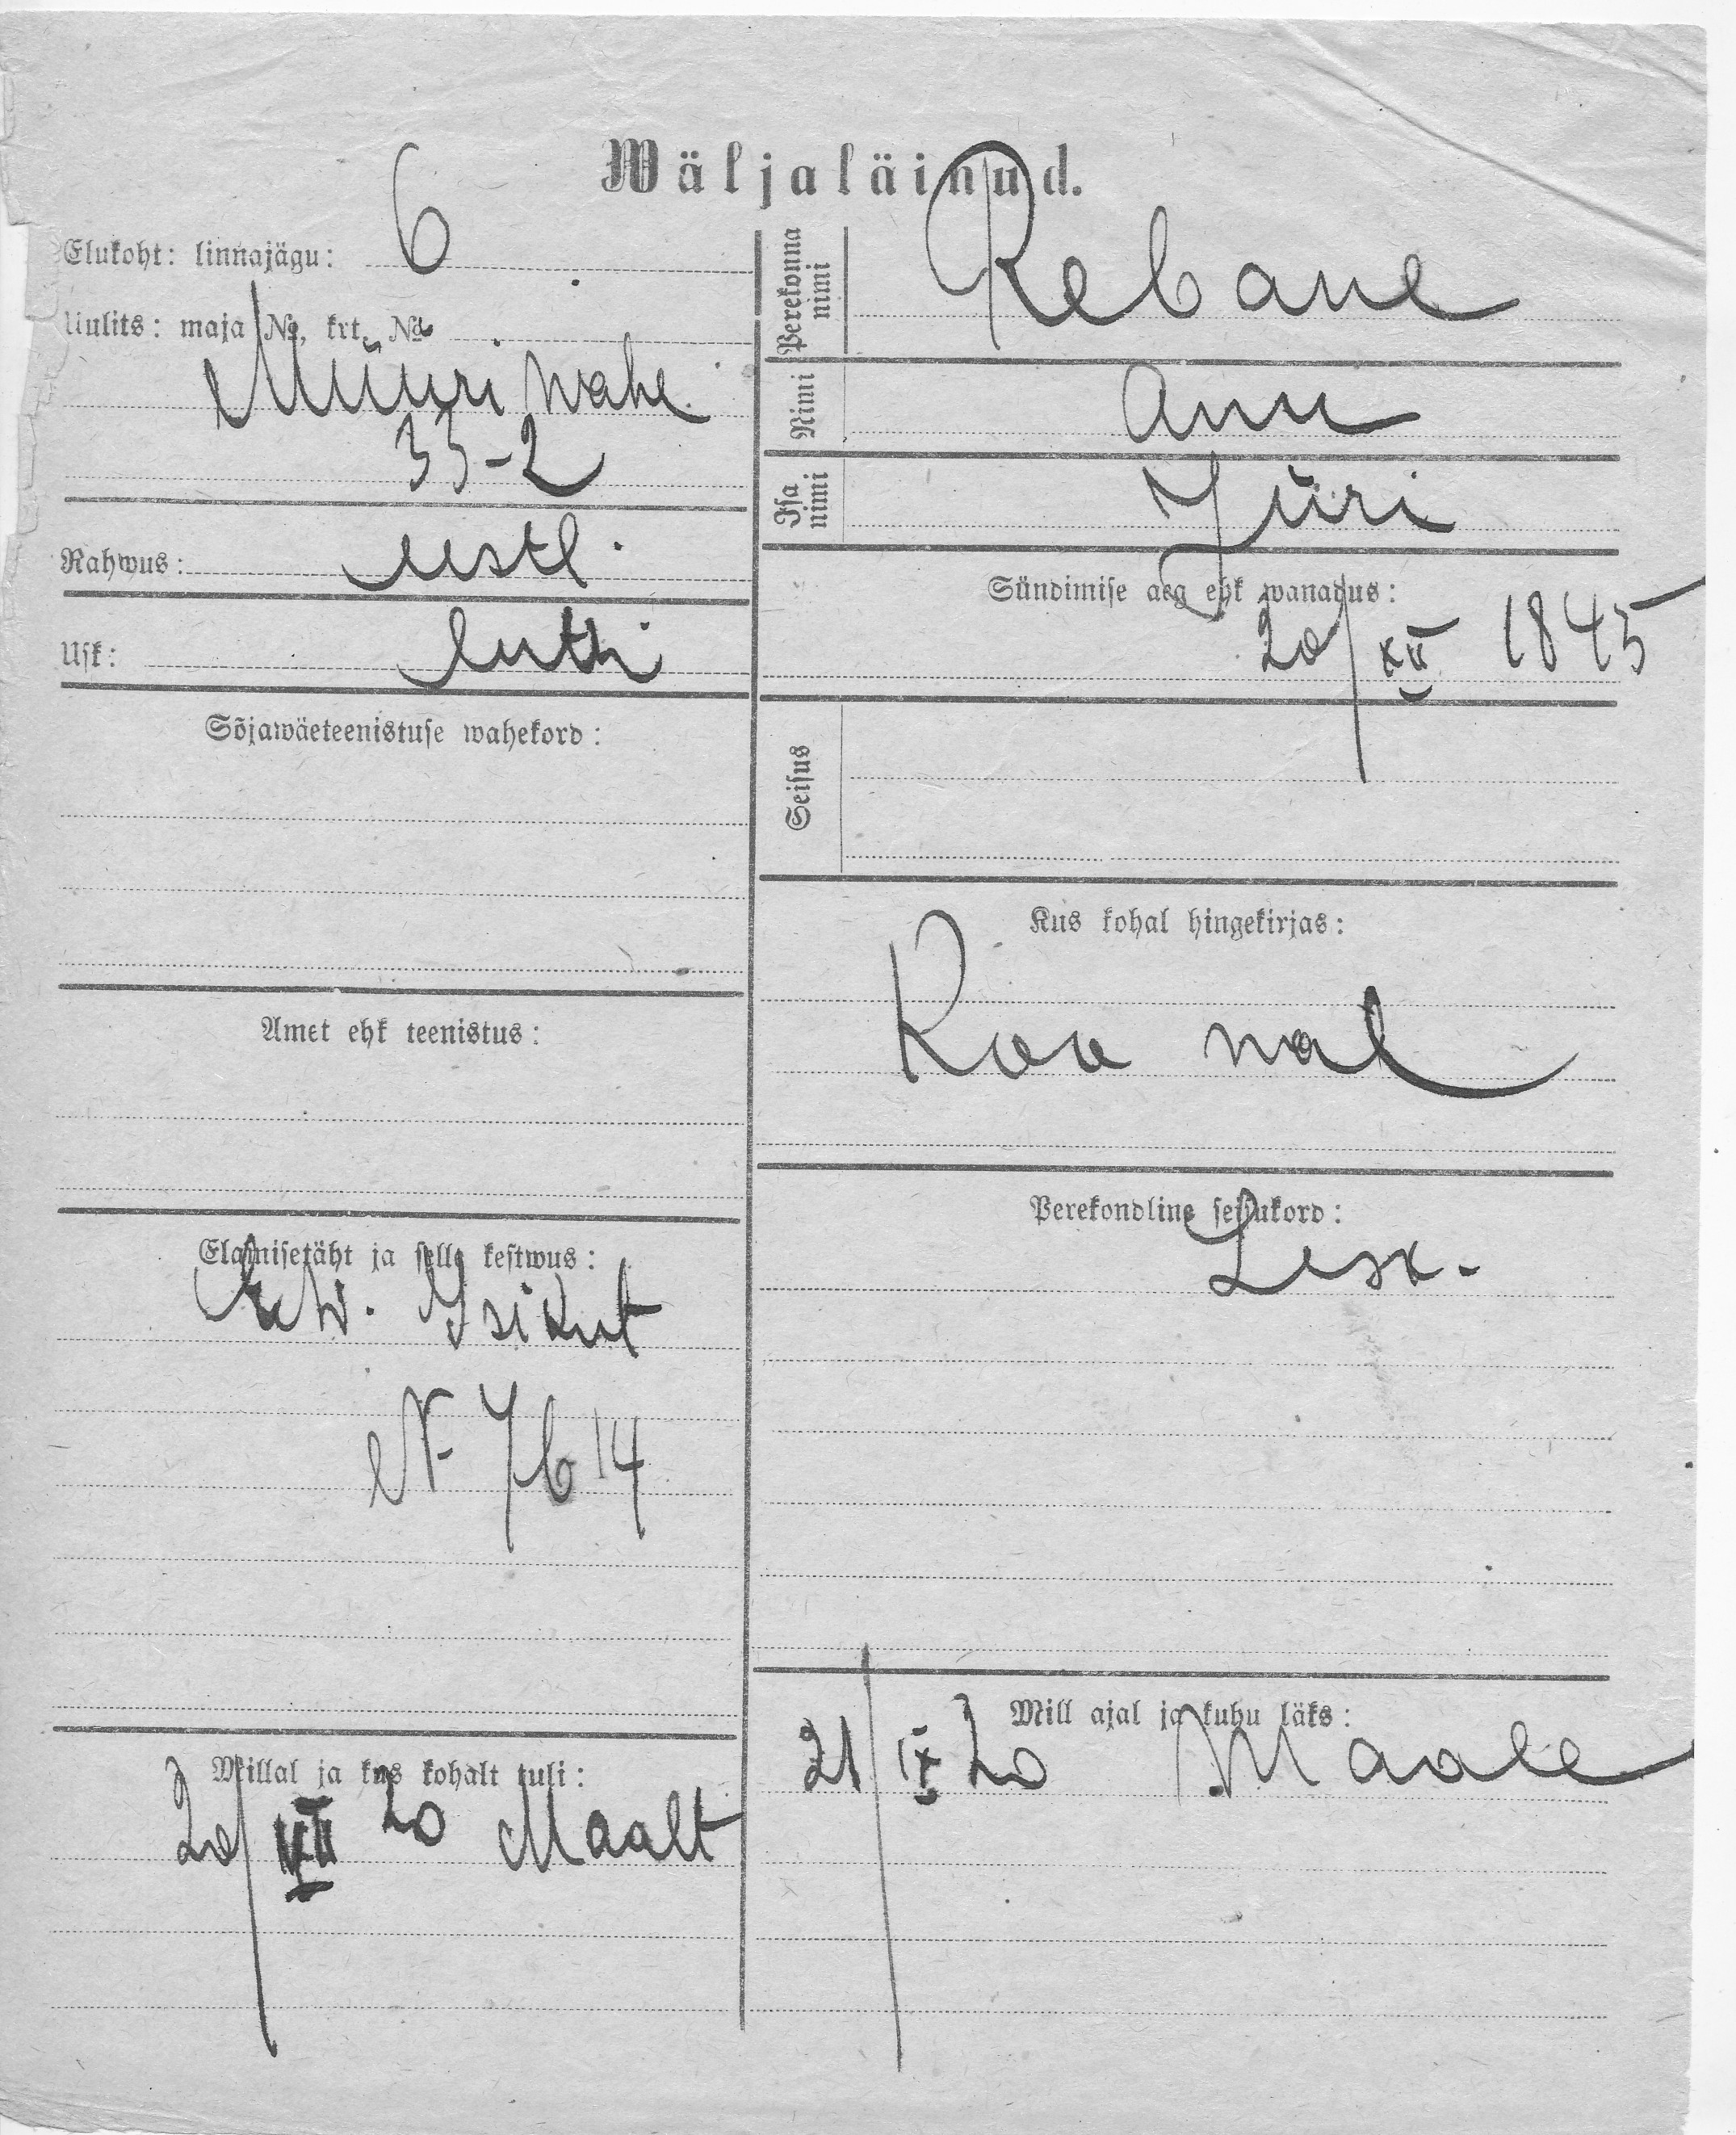 Wäljaläinud.
Elukoht: linnajägu: 6
Uulits: maja №, krt. №
Müüri wahe
33-2
Rahwus: eestl.
Usk: luth
Sõjawäeteenistuse wahekord:
Amet ehk teenistus:
Elamisetäht ja selle kestwus:
Isikut
N 7614
Millal ja kus kohalt tuli:
20/VII 20 Maalt
Perekonna nimi
Rebane
Nimi
Anu
Isa nimi
Jüri
Sündimise aeg ehk wanadus:
20/XII 1845
Seisus
Kus kohal hingekirjas:
wal
Perekondline seisukord:
Lesk.
Mill ajal ja kuhu läks:
21/IX 20 Maale